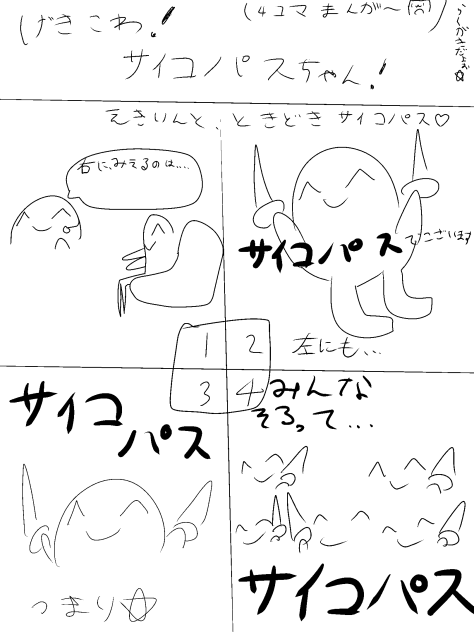 げきこわ!
(4コマまんが〜(笑))
らくがきだよぉ☆
サイコパスちゃん!
えきいんと、ときどきサイコパス♡
右に、みえるのは....
サイコパス
でございます
左にも...
1 2
3 4
サイコ
パス
つまり☆
みんな
そろって...
サイコパス